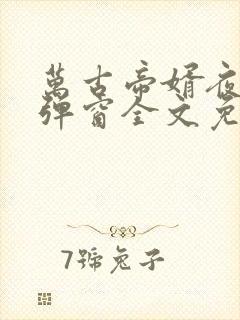 萬古帝婿夜
彈窗全文免
7號兔子